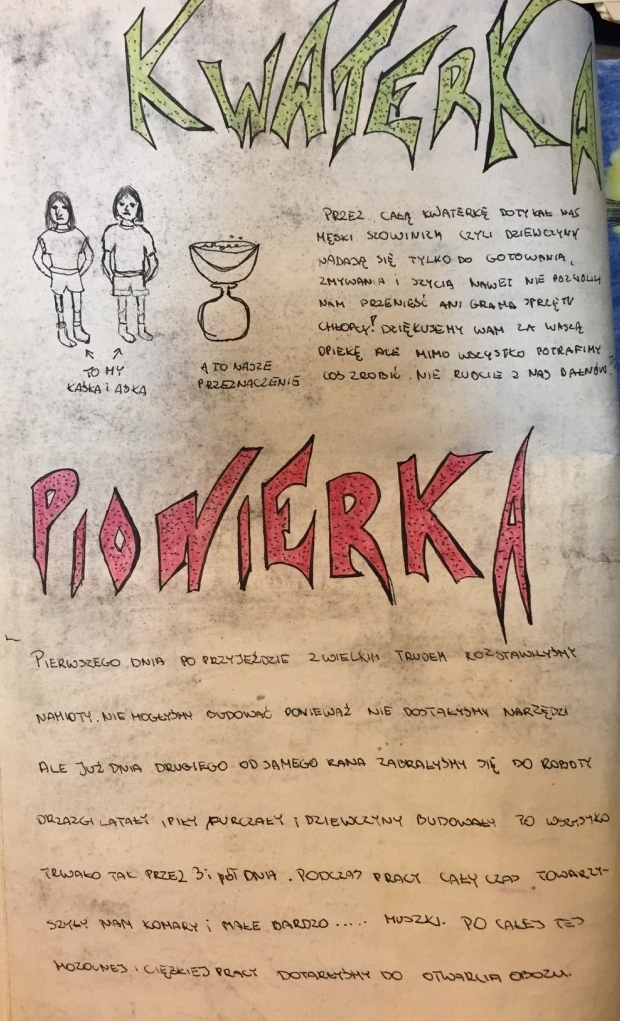 KWATERKA
PRZEZ CAŁĄ KWATERKĘ DOTYKAŁ NAS
MĘSKI SZOWINIZM CZYLI DZIEWCZYNY
NADAJĄ SIĘ TYLKO DO GOTOWANIA,
ZMYWANIA I SZYCIA NAWET NIE POZWOLILI
NAM PRZENIEŚĆ ANI GRAMA SPRZĘTU
CHŁOPCY! DZIĘKUJEMY WAM ZA WASZĄ
OPIEKĘ ALE MIMO WSZYSTKO POTRAFIMY
COŚ ZROBIĆ. NIE RÓBCIE Z NAS
TO MY
KAŚKA i AŚKA
A TO NASZE
PRZEZNACZENIE
PIONIERKA
PIERWSZEGO DNIA PO PRZYJEŹDZIE Z WIELKIM TRUDEM ROZSTAWIŁYŚMY
NAMIOTY. NIE MOGŁYŚMY BUDOWAĆ PONIEWAŻ NIE DOSTAŁYŚMY NARZĘDZI
ALE JUŻ DNIA DRUGIEGO OD SAMEGO RANA ZABRAŁYŚMY SIĘ DO ROBOTY
DRZAZGI LATAŁY, PIŁY FURCZAŁY i DZIEWCZYNY BUDOWAŁY TO WSZYSTKO
TRWAŁO TAK PRZEZ 3 i pół DNIA. PODCZAS PRACY CAŁY CZAS TOWARZY-
SZYŁY NAM KOMARY i MAŁE BARDZO ..... MUSZKI. PO CAŁEJ TEJ
MOZOLNEJ i CIĘŻKIEJ PRACY DOTARŁYŚMY DO OTWARCIA OBOZU.